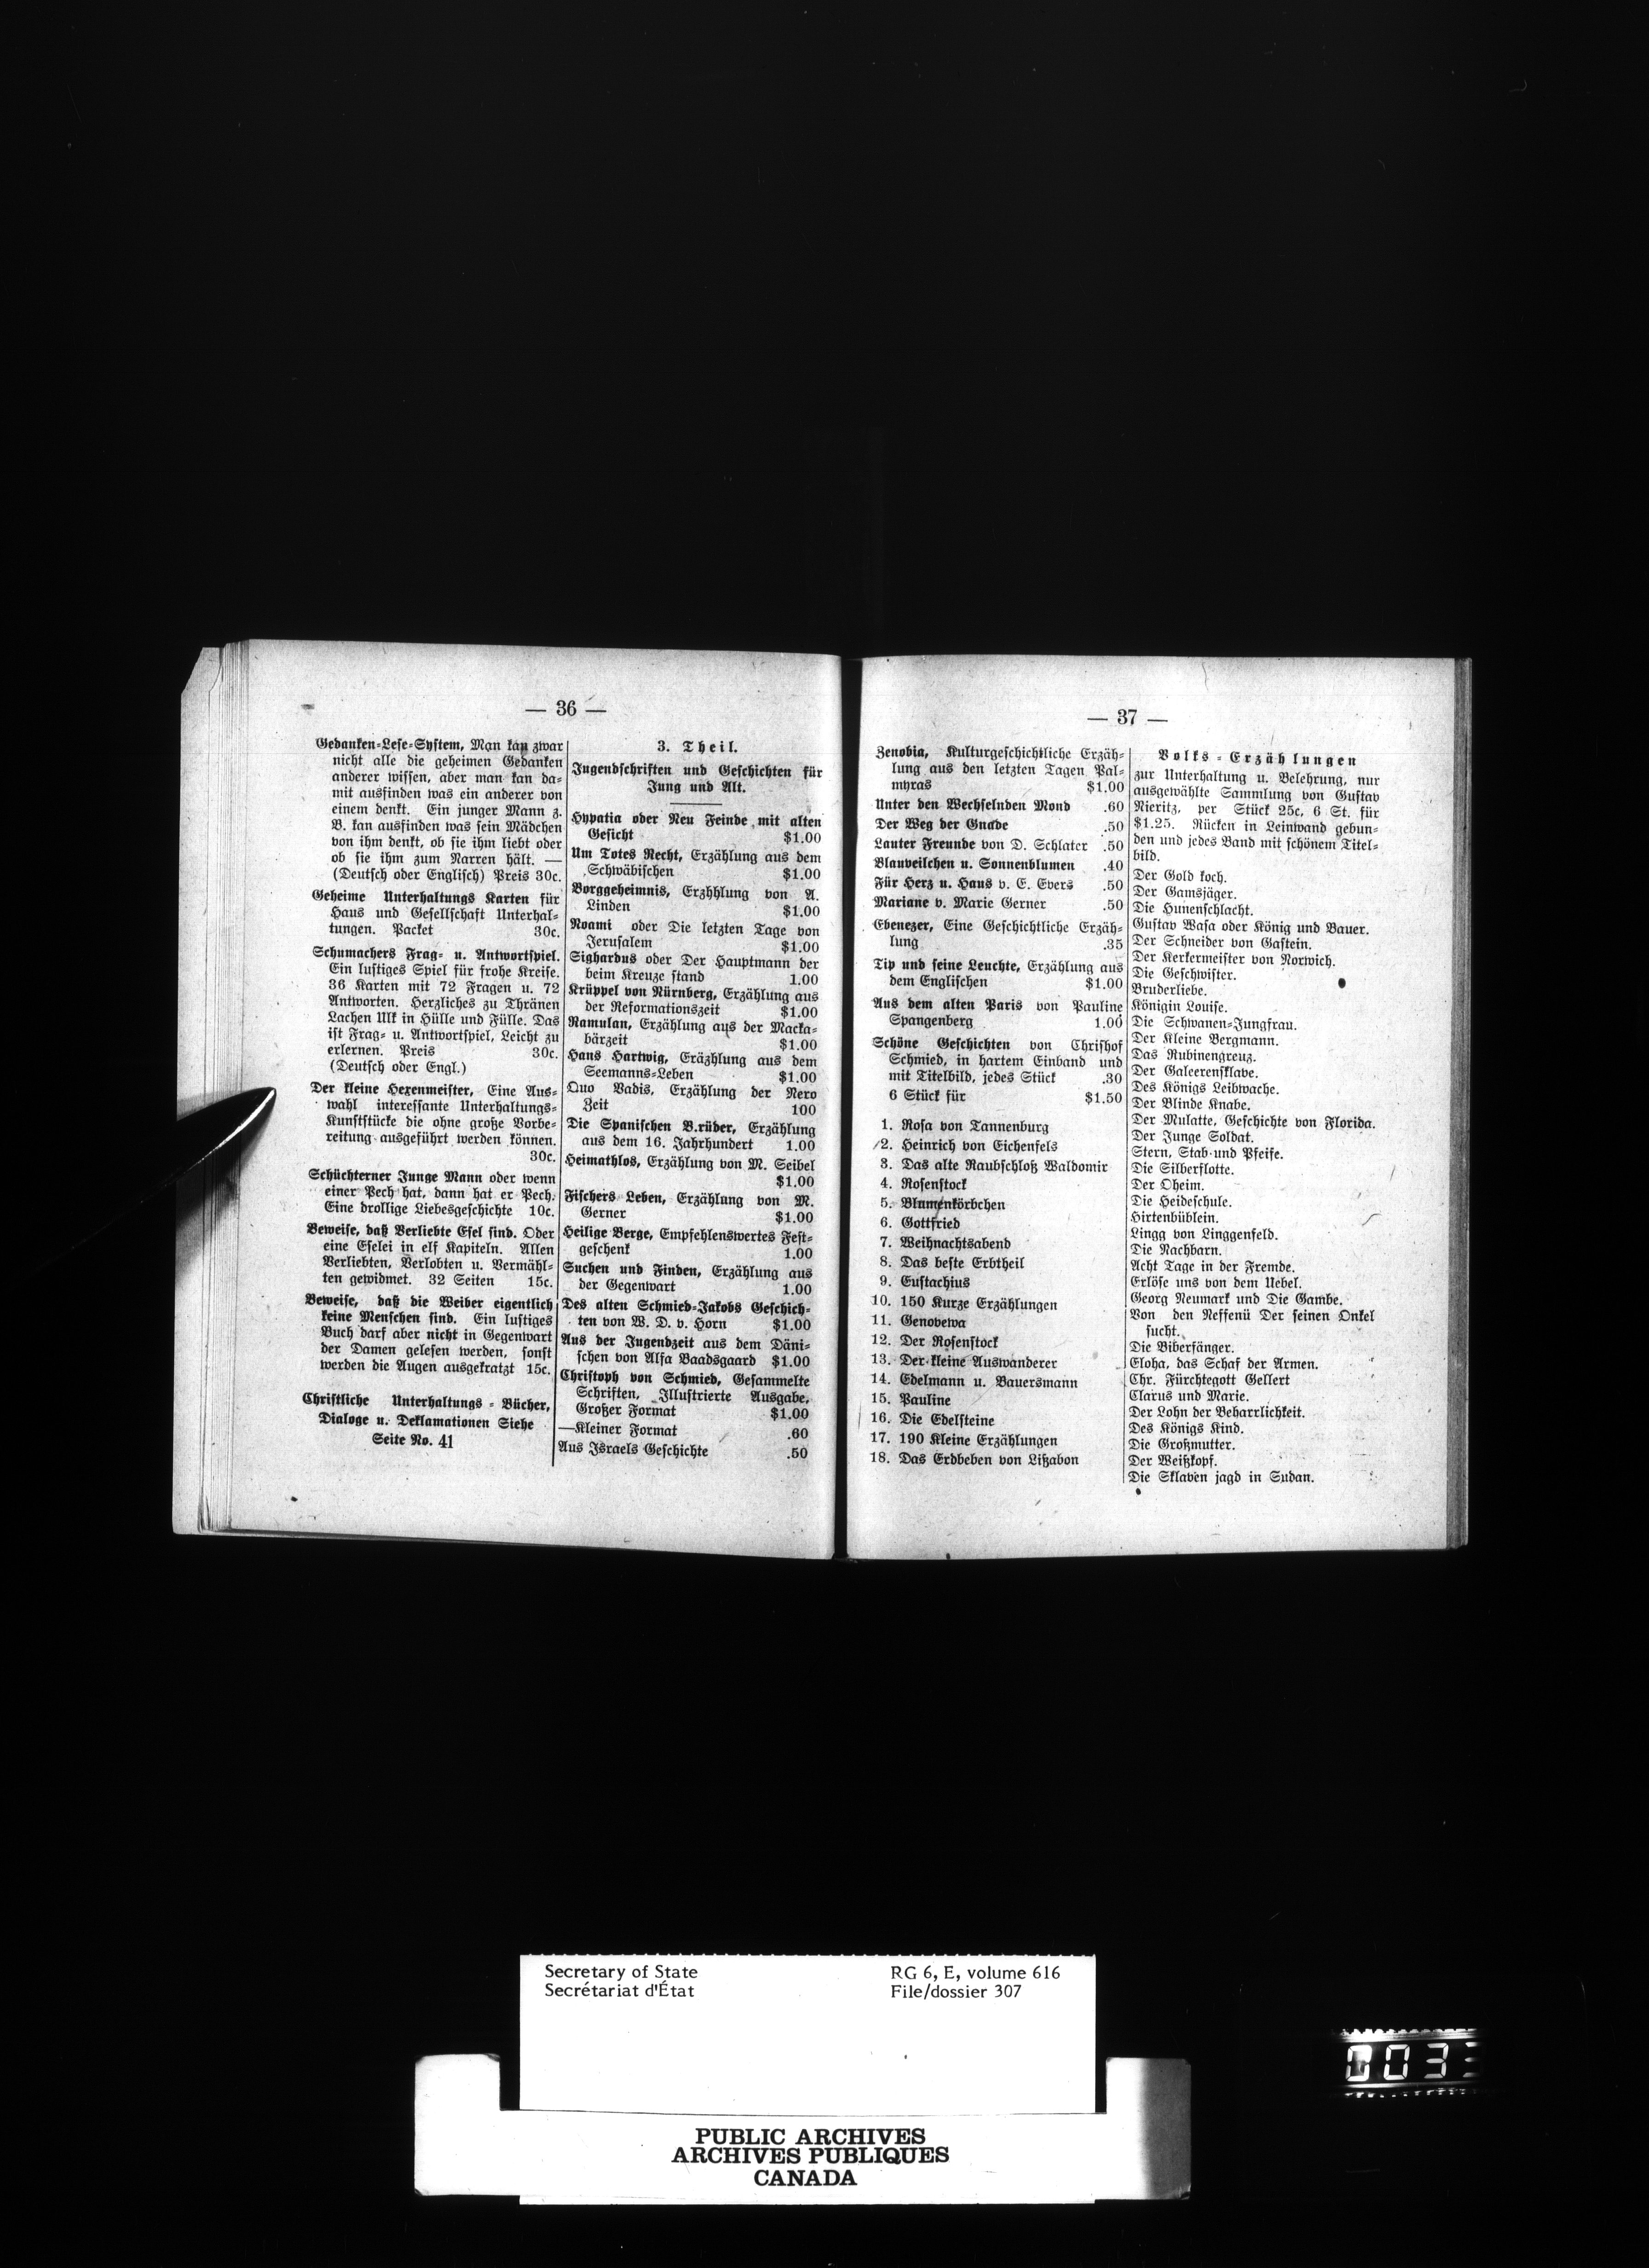 — 36 —
Gedanken-Lese-System, Man kan zwar
nicht alle die geheimen Gedanken
anderer wissen, aber man kan da-
mit ausfinden was ein anderer von
einem denkt. Ein junger Mann z.
B. kan ausfinden was sein Mädchen
von ihm denkt, ob sie ihm liebt oder
ob sie ihm zum Narren hält. —
(Deutsch oder Englisch) Preis 30c.
Geheime Unterhaltungs Karten für
Haus und Gesellschaft Unterhal-
tungen. Packet 30c.
Schumachers Frag- u. Antwortspiel.
Ein lustiges Spiel für frohe Kreise.
36 Karten mit 72 Fragen u. 72
Antworten. Herzliches zu Thränen
Lachen Ulk in Hülle und Fülle. Das
ist Frag- u. Antwortspiel, Leicht zu
erlernen. Preis 30c.
(Deutsch oder Engl.)
Der kleine Hexenmeister, Eine Aus-
wahl interessante Unterhaltungs-
Kunststücke die ohne große Vorbe-
reitung ausgeführt werden können.
30c.
Schüchterner Junge Mann oder wenn
einer Pech hat, dann hat er Pech.
Eine drollige Liebesgeschichte 10c.
Beweise, daß Verliebte Esel sind. Oder
eine Eselei in elf Kapiteln. Allen
Verliebten, Verlobten u. Vermähl-
ten gewidmet. 32 Seiten 15c.
Beweise, daß die Weiber eigentlich
keine Menschen sind. Ein lustiges
Buch darf aber nicht in Gegenwart
der Damen gelesen werden, sonst
werden die Augen ausgekratzt 15c.
Christliche Unterhaltungs - Bücher,
Dialoge u. Deklamationen Siehe
Seite No. 41
3. Theil.
Jugendschriften und Geschichten für
Jung und Alt.
Hypatia oder Neu Feinde mit alten
Gesicht $1.00
Um Totes Recht, Erzählung aus dem
Schwäbischen $1.00
Borggeheimnis, Erzhhlung von A.
Linden $1.00
Noami oder Die letzten Tage von
Jerusalem $1.00
Sighardus oder Der Hauptmann der
beim Kreuze stand 1.00
Krüppel von Nürnberg, Erzählung aus
der Reformationszeit $1.00
Ramulan, Erzählung aus der Macka-
bärzeit $1.00
Hans Hartwig, Eräzhlung aus dem
Seemanns-Leben $1.00
Quo Vadis, Erzählung der Nero
Zeit 100
Die Spanischen B.rüder, Erzählung
aus dem 16. Jahrhundert 1.00
Heimathlos, Erzählung von M. Seibel
$1.00
Fischers Leben, Erzählung von M.
Gerner $1.00
Heilige Berge, Empfehlenswertes Fest-
geschenk 1.00
Suchen und Finden, Erzählung aus
der Gegenwart 1.00
Des alten Schmied-Jakobs Geschich-
ten von W. D. v. Horn $1.00
Aus der Jugendzeit aus dem Däni-
schen von Alfa Baadsgaard $1.00
Christoph von Schmied, Gesammelte
Schriften, Illustrierte Ausgabe,
Großer Format $1.00
—Kleiner Format .60
Aus Israels Geschichte .50
— 37 —
Zenobia, Kulturgeschichtliche Erzäh-
lung aus den letzten Tagen Pal-
myras $1.00
Unter den Wechselnden Mond .60
Der Weg der Gnade .50
Lauter Freunde von D. Schlater .50
Blauveilchen u. Sonnenblumen .40
Für Herz u. Haus v. E. Evers .50
Mariane v. Marie Gerner .50
Ebenezer, Eine Geschichtliche Erzäh-
lung .35
Tip und seine Leuchte, Erzählung aus
dem Englischen $1.00
Aus dem alten Paris von Pauline
Spangenberg 1.00
Schöne Geschichten von Chrishof
Schmied, in hartem Einband und
mit Titelbild, jedes Stück .30
6 Stück für $1.50
1. Rosa von Tannenburg
2. Heinrich von Eichenfels
3. Das alte Raubschloß Waldomir
4. Rosenstock
5. Blumenkörbchen
6. Gottfried
7. Weihnachtsabend
8. Das beste Erbtheil
9. Eustachius
10. 150 Kurze Erzählungen
11. Genovewa
12. Der Rosenstock
13. Der kleine Auswanderer
14. Edelmann u. Bauersmann
15. Pauline
16. Die Edelsteine
17. 190 Kleine Erzählungen
18. Das Erdbeben von Lißabon
Volks-Erzählungen
zur Unterhaltung u. Belehrung, nur
ausgewählte Sammlung von Gustav
Nieritz, per Stück 25c, 6 St. für
$1.25. Rücken in Leinwand gebun-
den und jedes Band mit schönem Titel-
bild.
Der Gold koch.
Der Gamsjäger.
Die Hunenschlacht.
Gustav Wasa oder König und Bauer.
Der Schneider von Gastein.
Der Kerkermeister von Norwich.
Die Geschwister.
Bruderliebe.
Königin Louise.
Die Schwanen-Jungfrau.
Der Kleine Bergmann.
Das Rubinengreuz.
Der Galeerensklave.
Des Königs Leibwache.
Der Blinde Knabe.
Der Mulatte, Geschichte von Florida.
Der Junge Soldat.
Stern, Stab und Pfeife.
Die Silberflotte.
Der Oheim.
Die Heideschule.
Hirtenbüblein.
Lingg von Linggenfeld.
Die Nachbarn.
Acht Tage in der Fremde.
Erlöse uns von dem Uebel.
Georg Neumark und Die Gambe.
Von den Neffenü Der seinen Onkel
sucht.
Die Biberfänger.
Eloha, das Schaf der Armen.
Chr. Fürchtegott Gellert
Clarus und Marie.
Der Lohn der Beharrlichkeit.
Des Königs Kind.
Die Großmutter.
Der Weißkopf.
Die Sklaven jagd in Sudan.
Secretary of State
Secrétariat d'État
RG 6, E, volume 616
File/dossier 307
PUBLIC ARCHIVES
ARCHIVES PUBLIQUES
CANADA
003